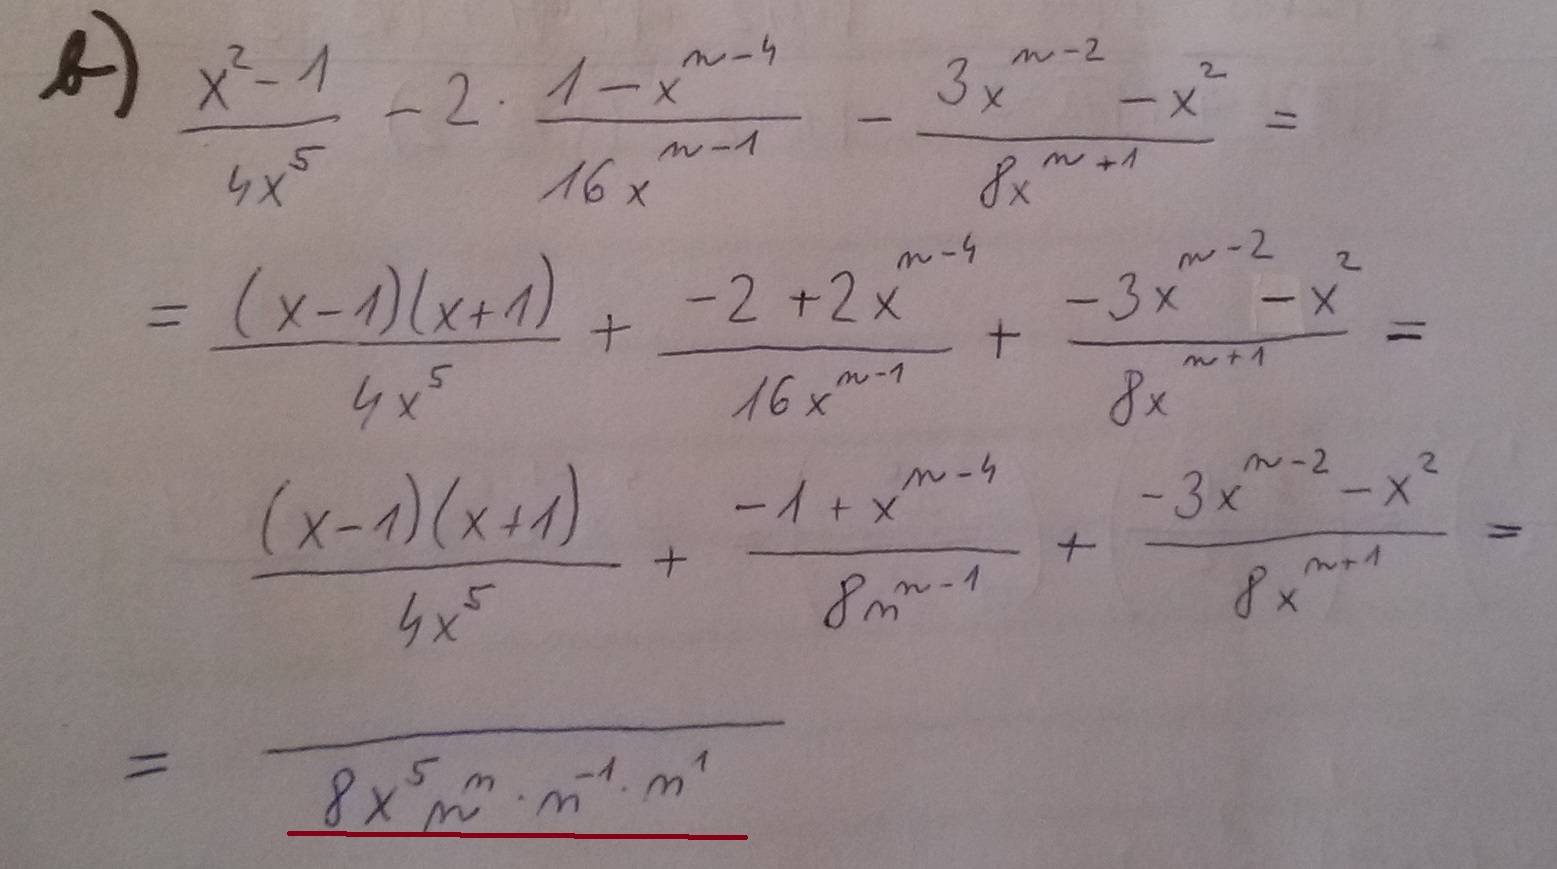 b) \frac{x^2-1}{4x^5} - 2 \cdot \frac{1-x^{n-4}}{16x^{n-1}} - \frac{3x^{n-2}-x^2}{8x^{n+1}} =
= \frac{(x-1)(x+1)}{4x^5} + \frac{-2+2x^{n-4}}{16x^{n-1}} + \frac{-3x^{n-2}-x^2}{8x^{n+1}} =
\frac{(x-1)(x+1)}{4x^5} + \frac{-1+x^{n-4}}{8n^{n-1}} + \frac{-3x^{n-2}-x^2}{8x^{n+1}} =
= \frac{}{8x^5 n^n \cdot n^{-1} \cdot n^1}